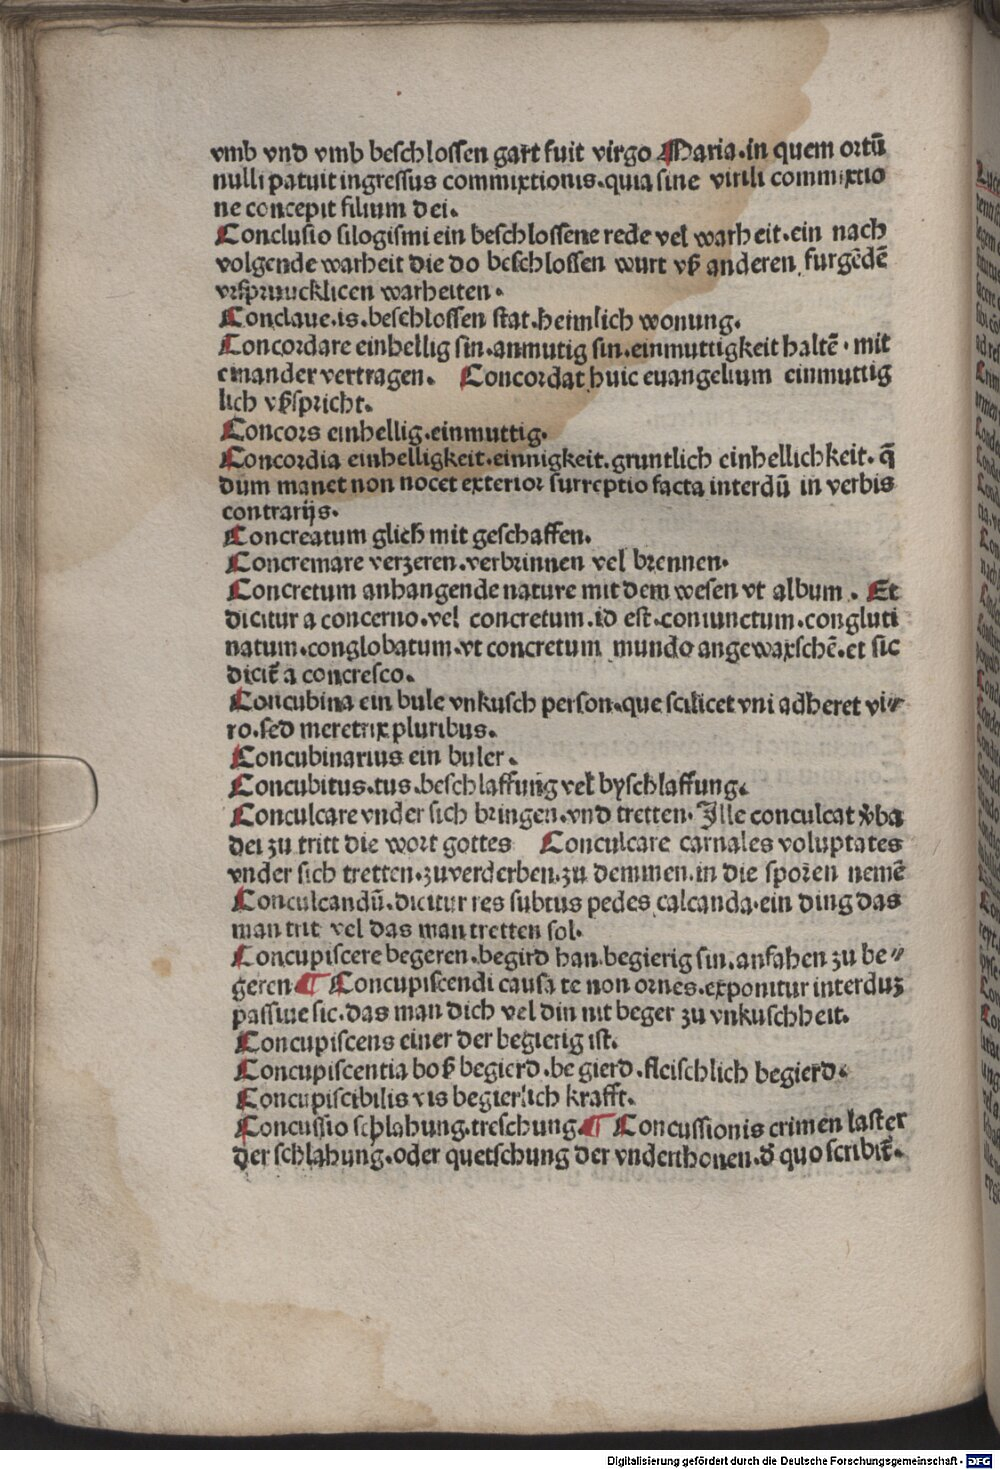 vmb vnd vmb beschlossen gart fuit virgo Maria.in quem ortū
nulli patuit ingressus commixtionis.quia sine virili commixtio
ne concepit filium dei.
Conclusio silogismi ein beschlossene rede vel warheit.ein nach
volgende warheit die do beschlossen wurt vß anderen furgēdē
vrspruucklicen warheiten.
Conclaue.is.beschlossen stat.heimlich wonung.
Concordare einhellig sin.anmutig sin.einmuttigkeit haltē.mit
einander vertragen. Concordat huic euangelium einmuttig
lich vßspricht.
Concors einhellig.einmuttig.
Concordia einhelligkeit.einnigkeit.gruntlich einhellichkeit.q̄
dum manet non nocet exterior surreptio facta interdū in verbis
contrarijs.
Concreatum glich mit geschaffen.
Concremare verzeren.verbrinnen vel brennen.
Concretum anhangende nature mit dem wesen vt album. Et
dicitur a concerno.vel concretum.id est.coniunctum.congluti
natum.conglobatum.vt concretum mundo angewaxschē.et sic
dicit̄ a concresco.
Concubina ein bule vnkusch person.que scilicet vni adheret vi⸗
ro.sed meretrix pluribus.
Concubinarius ein buler.
Concubitus.tus.beschlaffung vel byschlaffung.
Conculcare vnder sich bringen.vnd tretten.Ille conculcat v̄ba
dei zu tritt die wort gottes Conculcare carnales voluptates
vnder sich tretten.zuverderben.zu demmen.in die sporen nemē
Conculcandū.dicitur res subtus pedes calcanda.ein ding das
man trit vel das man tretten sol.
Concupiscere begeren.begird han.begierig sin.anfahen zu be⸗
geren ¶ Concupiscendi causa te non ornes.exponitur interduꝫ
passiue sic.das man dich vel din nit beger zu vnkuschheit.
Concupiscens einer der begierig ist.
Concupiscentia boß begierd.be gierd.fleischlich begierd.
Concupiscibilis vis begierlich krafft.
Concussio schlahung.treschung.¶ Concussionis crimen laster
der schlahung.oder quetschung der vnderthonen.d̄ quo scribit̄.
Digitalisierung gefördert durch die Deutsche Forschungsgemeinschaft - DFG